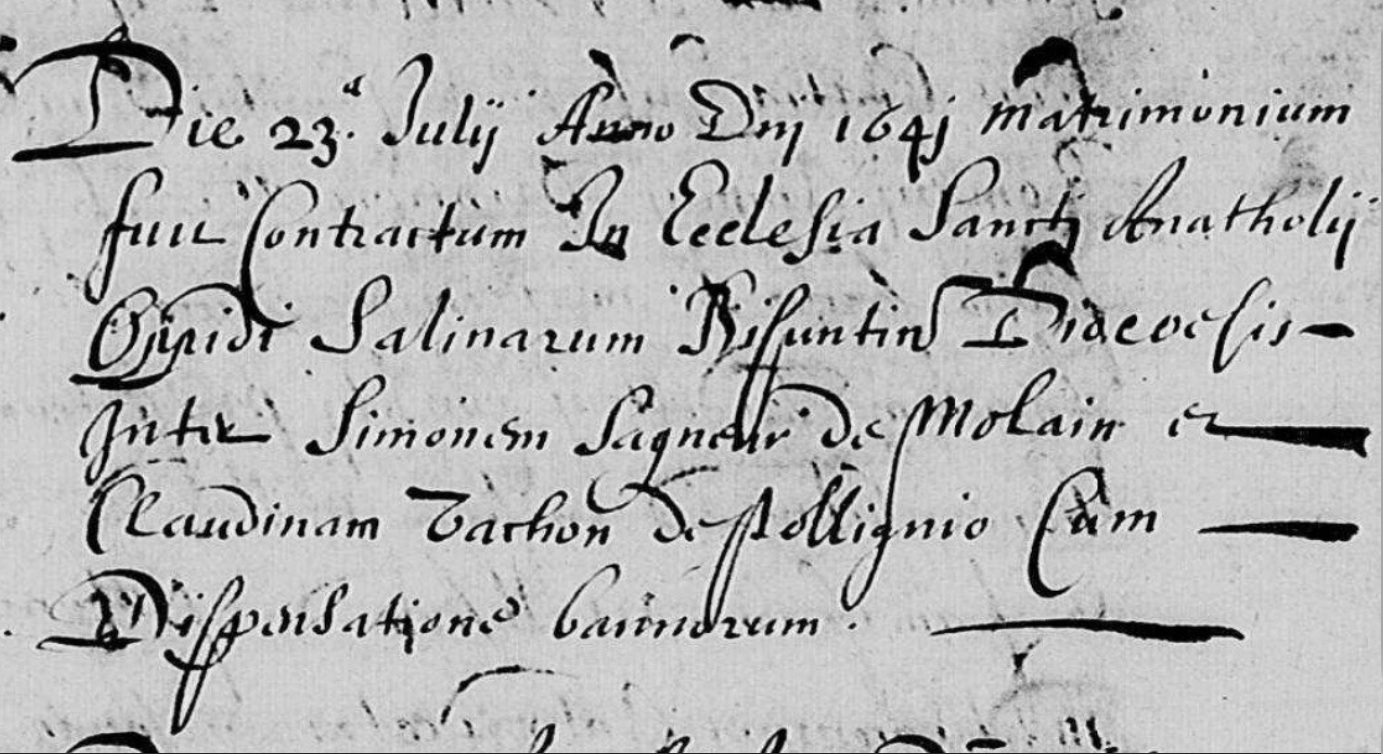 Die 23.a Julij Anno Dnj 1641 matrimonium
fuit Contractum In Ecclesia Sanctj Anatholij
Oppidi Salinarum Bisuntin Diaecoesis
Inter Simonem Sagneur de Molain et
Claudinam Tachon de Pollignio Cum
Dispensatione bannorum.